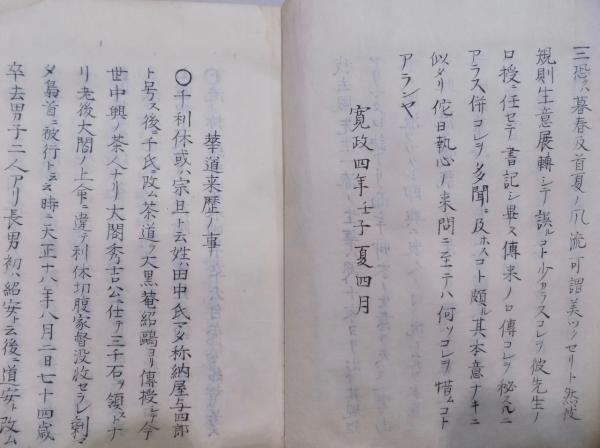 三恐ハ暮春及首夏ノ風流可謂美ツクセリト然後
規則生意展轉シテ誤ルコト少カラスコレヲ彼先生ノ
口授ニ任セテ書記シ畢ヌ傳来ノ口傳コレヲ秘スルニ
アラス併コレヲ多聞ニ及ホスコト頗ル其本意ナキニ
似タリ佗日執心ノ来問ニ至テハ何ソコレヲ惜ムコト
アランヤ
寛政四年壬子夏四月
華道来歴ノ事
〇千利休或ハ宗旦ト云姓ハ田中氏マタ称納屋与四郎
ト号ス後ニ千氏ニ改ム茶道ヲ大黒菴紹鷗ヨリ傳授シテ今
世中興ノ茶人ナリ大閤秀吉公ニ仕テ三千石ヲ領ストナ
リ老後大閤ノ上命ニ違テ利休切腹家督没收セラレ剰
タメ梟首ニ被行トニ云時ニ天正十八年八月二日七十四歳
卒去男子二人アリ長男初ハ紹安ト云後ニ道安ト改ム